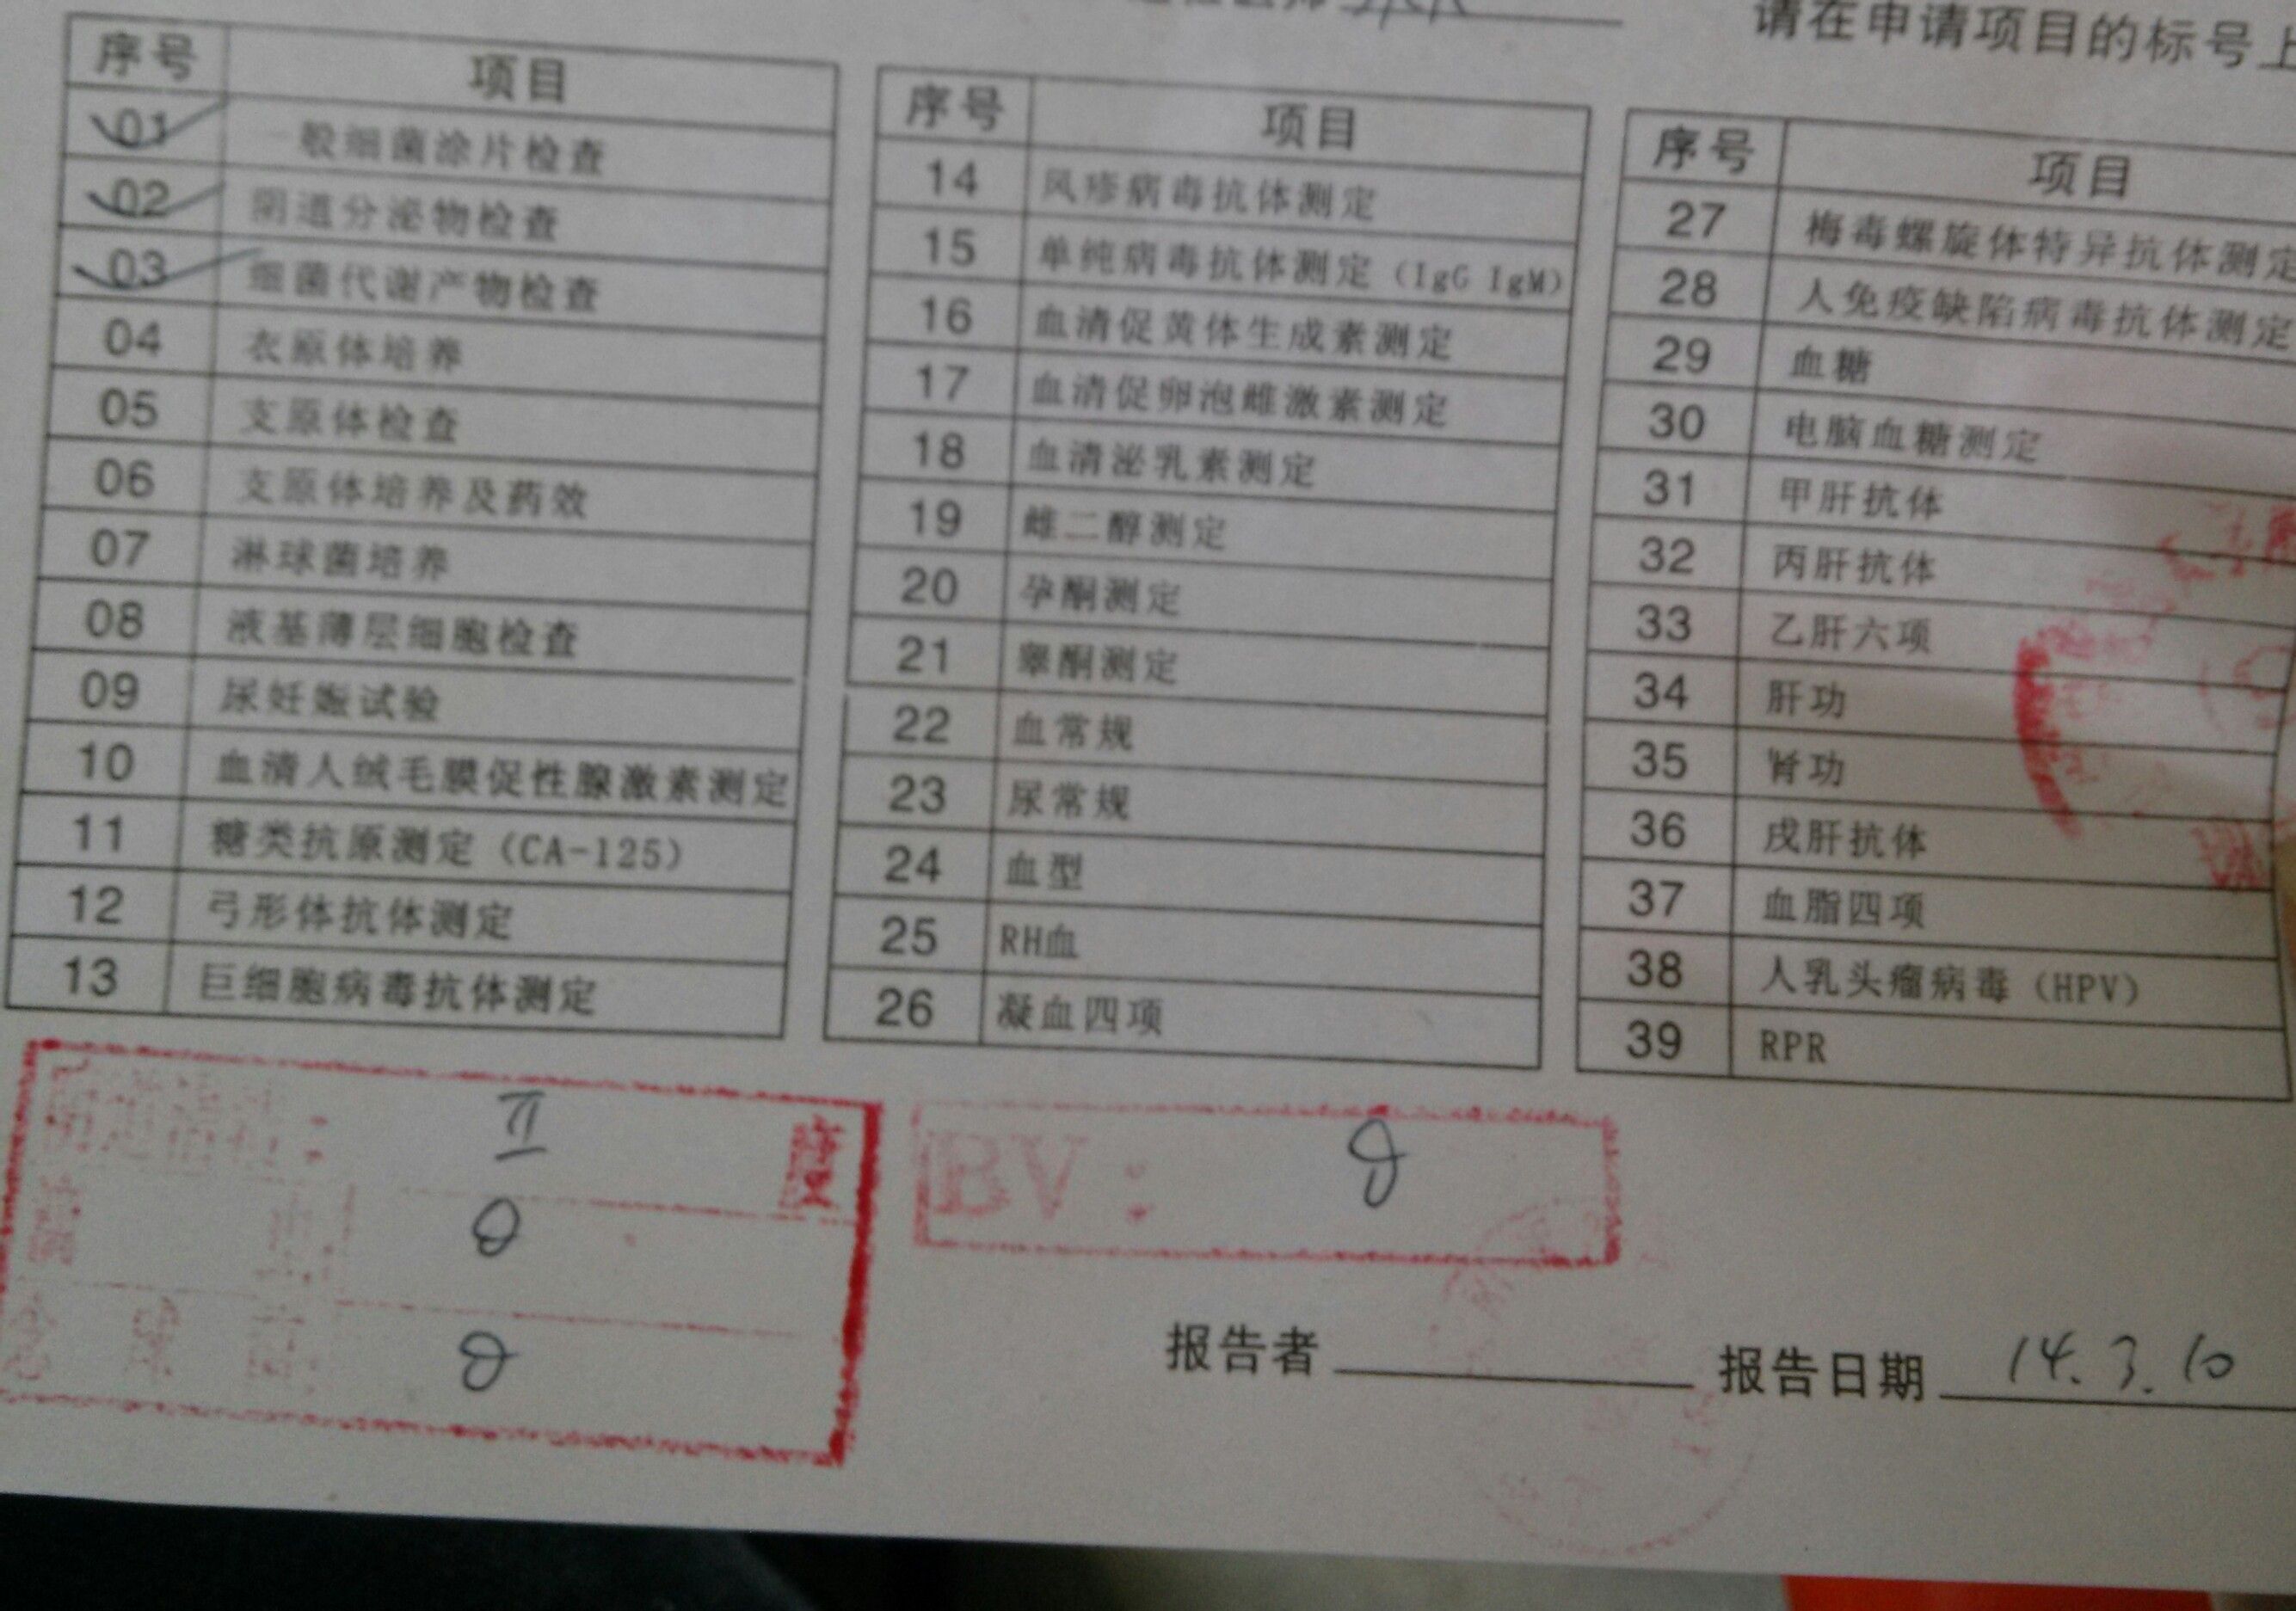 请在申请项目的标号上
序号 项目
01 一般细菌涂片检查
02 阴道分泌物检查
03 细菌代谢产物检查
04 衣原体培养
05 支原体检查
06 支原体培养及药效
07 淋球菌培养
08 液基薄层细胞检查
09 尿妊娠试验
10 血清人绒毛膜促性腺激素测定
11 糖类抗原测定（CA-125）
12 弓形体抗体测定
13 巨细胞病毒抗体测定
序号 项目
14 风疹病毒抗体测定
15 单纯病毒抗体测定（IgG IgM）
16 血清促黄体生成素测定
17 血清促卵泡雌激素测定
18 血清泌乳素测定
19 雌二醇测定
20 孕酮测定
21 睾酮测定
22 血常规
23 尿常规
24 血型
25 RH血
26 凝血四项
序号 项目
27 梅毒螺旋体特异抗体测定
28 人免疫缺陷病毒抗体测定
29 血糖
30 电脑血糖测定
31 甲肝抗体
32 丙肝抗体
33 乙肝六项
34 肝功
35 肾功
36 戌肝抗体
37 血脂四项
38 人乳头瘤病毒（HPV）
39 RPR
II 度
BV：
报告者 报告日期 14.3.10